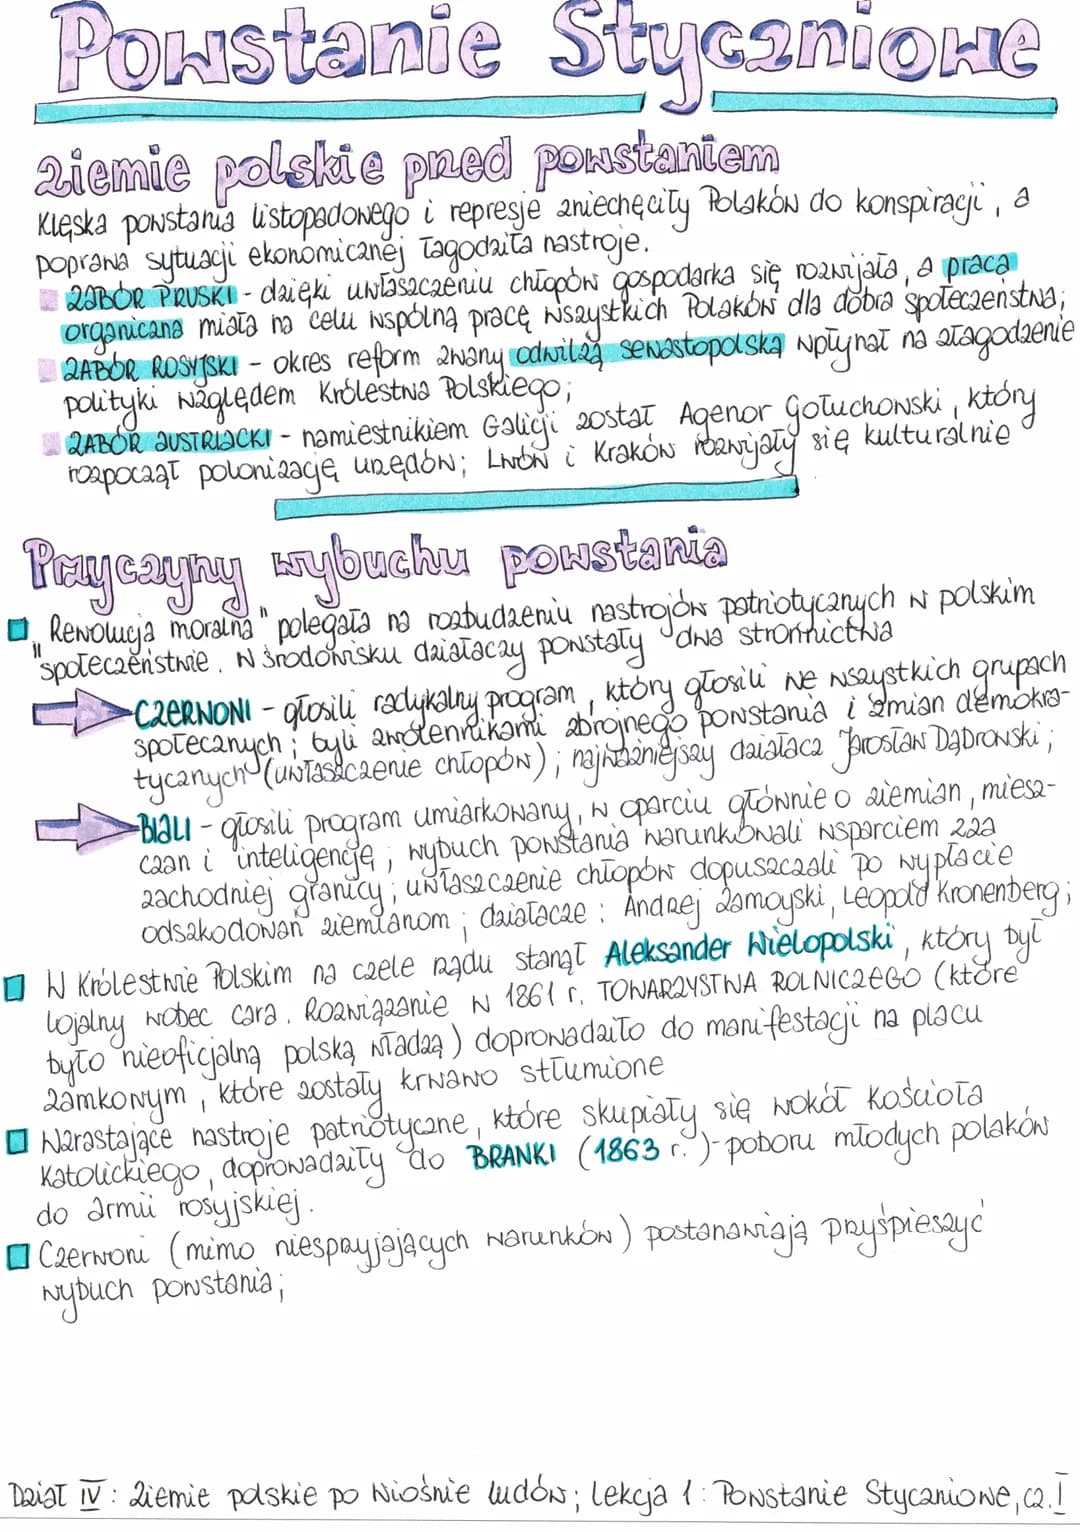 Powstanie Styczniowe
Ziemie polskie przed powstaniem
Klęska powstania listopadowego i represje zniechęciły Polaków do konspiracji, a
poprawa sytuacji ekonomicznej łagodziła nastroje.
ZABÓR PRUSKI - dzięki uwłaszczeniu chłopów gospodarka się rozwijała, a praca
organiczna miała na celu wspólną pracę wszystkich Polaków dla dobra społeczeństwa;
ZABÓR ROSYJSKI - okres reform zwany odwilżą sewastopolską wpłynął na złagodzenie
polityki względem Królestwa Polskiego;
ZABÓR AUSTRIACKI - namiestnikiem Galicji został Agenor Gołuchowski, który
rozpoczął polonizację urzędów; Lwów i Kraków rozwijały się kulturalnie
Przyczyny wybuchu powstania
"Rewolucja moralna" polegała na rozbudzeniu nastrojów patriotycznych w polskim
społeczeństwie. W środowisku działaczy powstały dwa stronnictwa
CZERWONI - głosili radykalny program, który głosili we wszystkich grupach
społecznych; byli zwolennikami zbrojnego powstania i zmian demokra-
tycznych (uwłaszczenie chłopów); najważniejszy działacz Jarosław Dąbrowski;
BIALI - głosili program umiarkowany, w oparciu głównie o ziemian, miesz-
czan i inteligencję; wybuch powstania warunkowali wsparciem zza
zachodniej granicy; uwłaszczenie chłopów dopuszczali po wypłacie
odszkodowań ziemianom; działacze: Andrzej Zamoyski, Leopold Kronenberg;
W Królestwie Polskim na czele rządu stanął Aleksander Wielopolski, który był
lojalny wobec cara. Rozwiązanie w 1861 r. TOWARZYSTWA ROLNICZEGO (które
było nieoficjalną polską władzą) doprowadziło do manifestacji na placu
zamkowym, które zostały krwawo stłumione
Narastające nastroje patriotyczne, które skupiały się wokół Kościoła
Katolickiego, doprowadziły do BRANKI (1863 r.)- poboru młodych polaków
do armii rosyjskiej.
Czerwoni (mimo niesprzyjających warunków) postanawiają przyśpieszyć
wybuch powstania;
Dział IV: Ziemie polskie po Wiośnie Ludów; Lekcja 1: Powstanie Styczniowe, cz. I